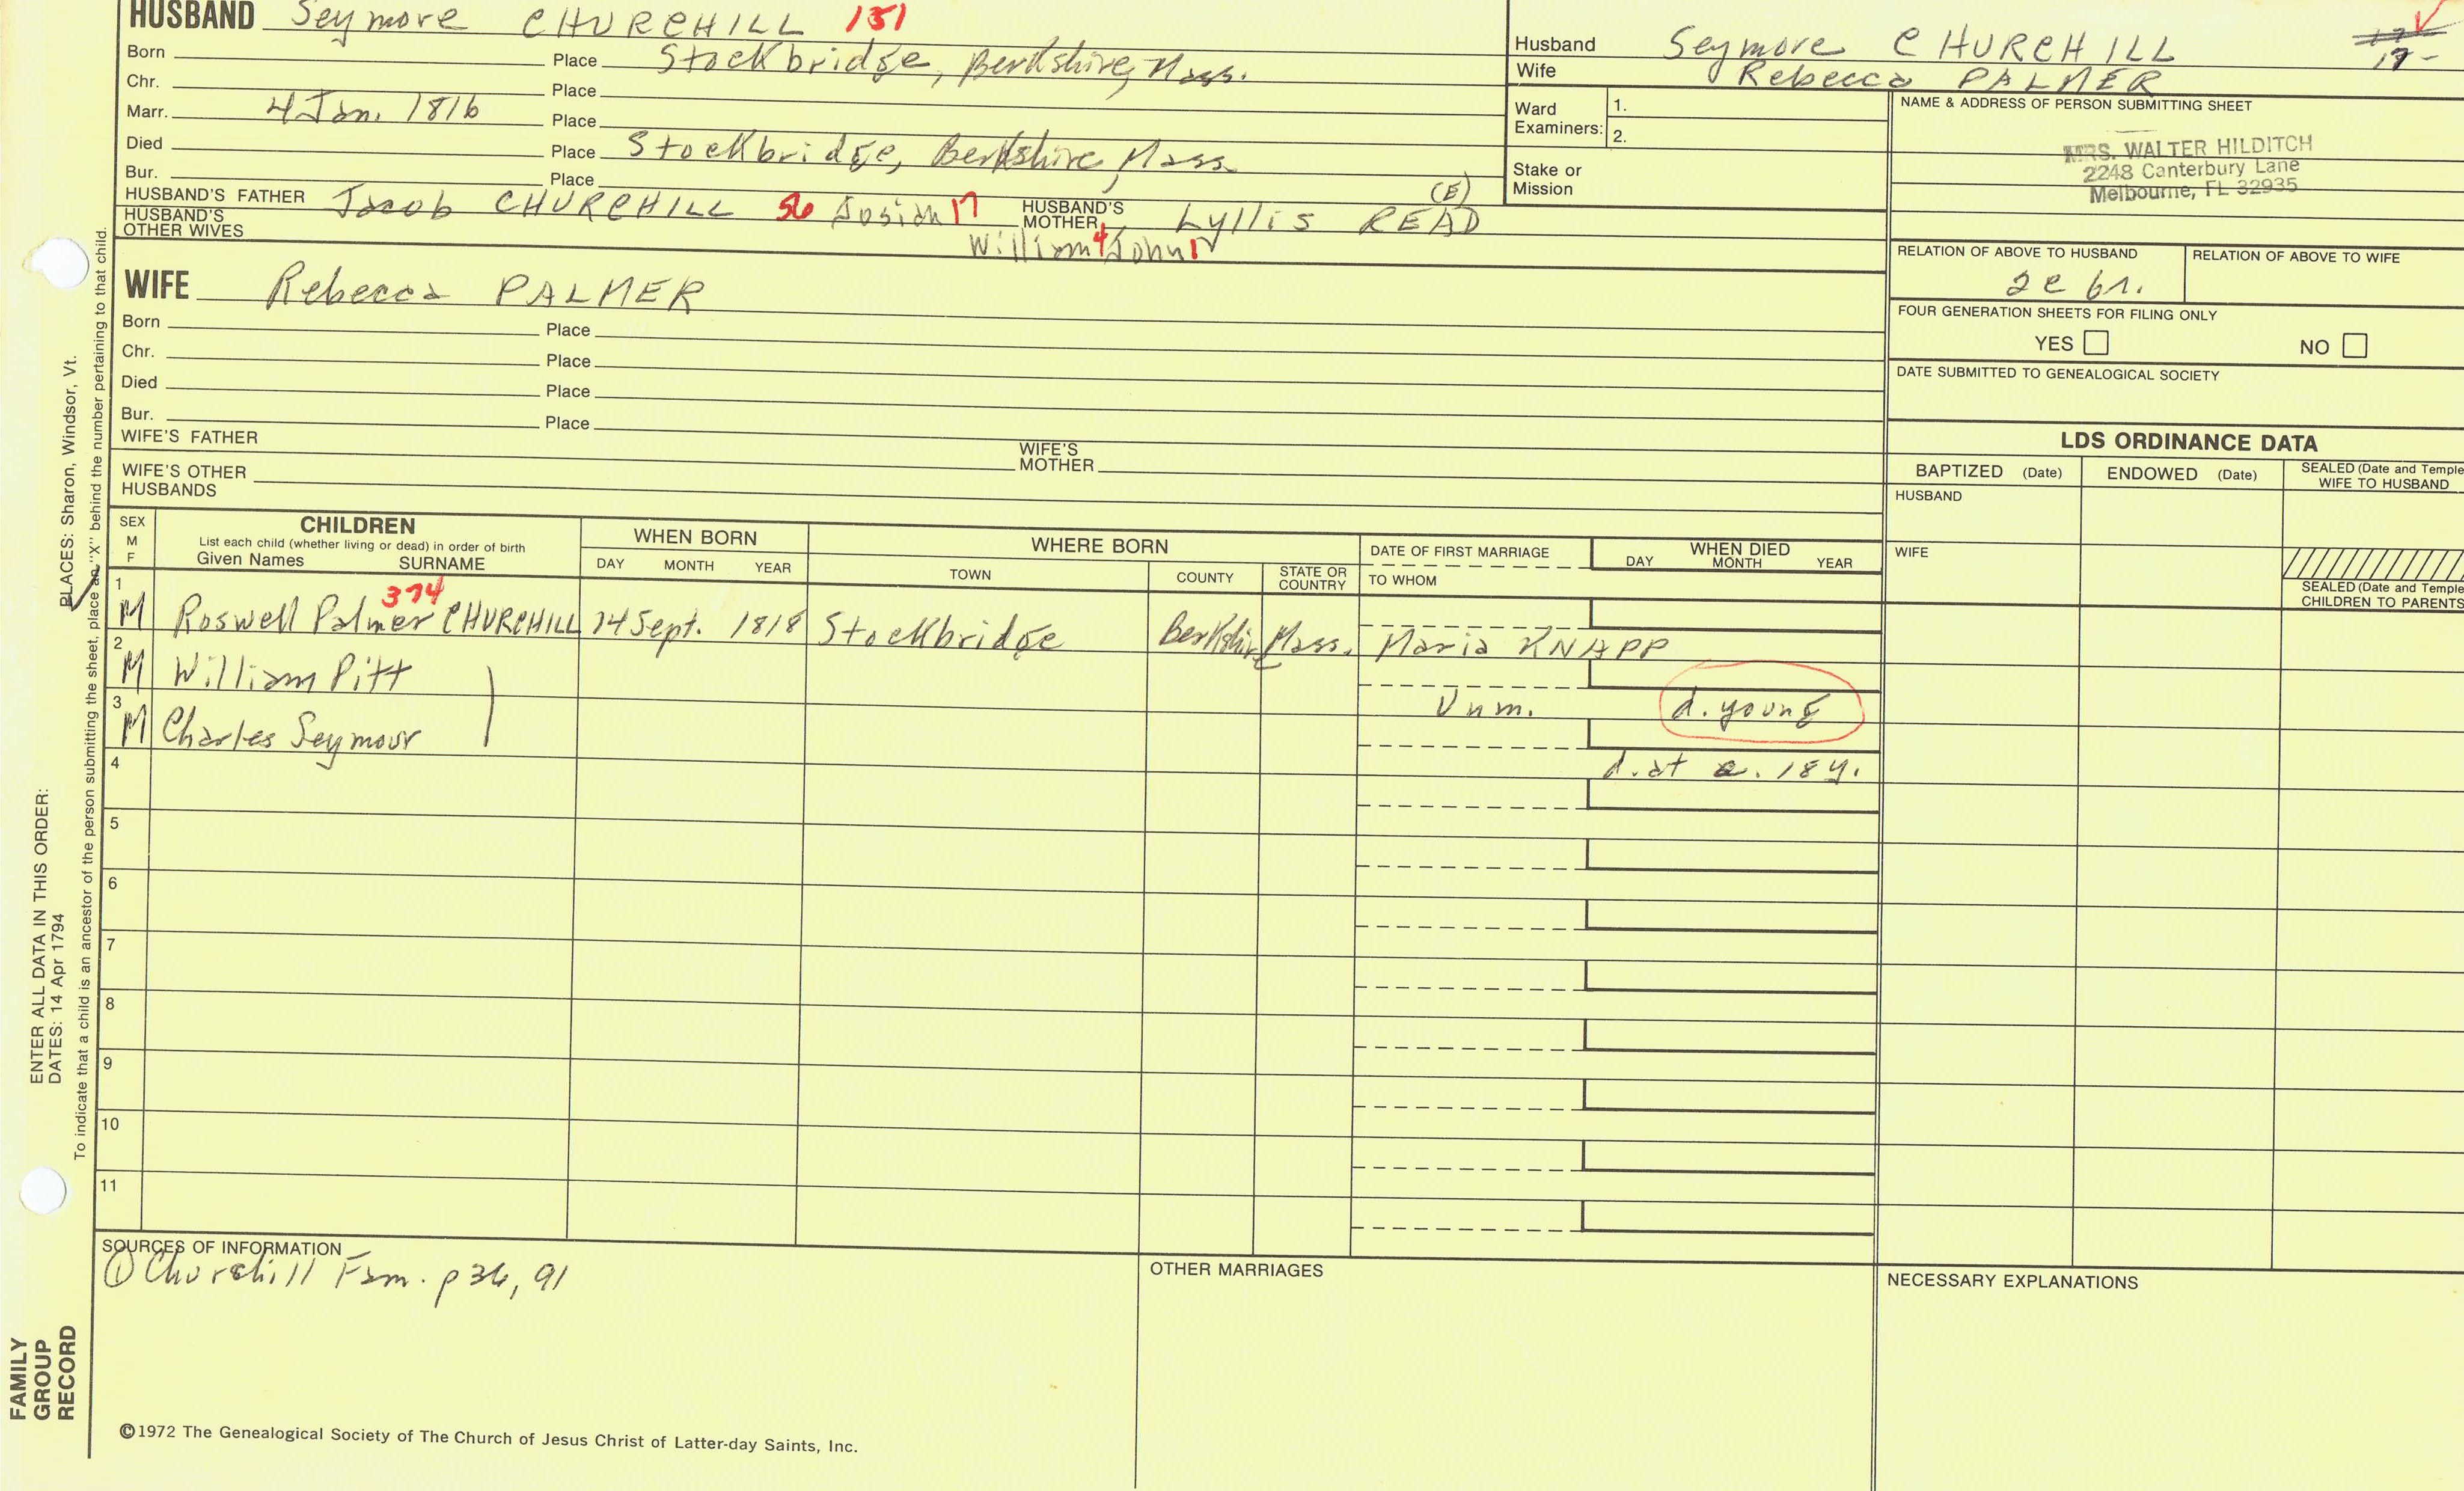 HUSBAND Seymore CHURCHILL 151
Born Place Stockbridge, Berkshire, Mass.
Chr. Place
Marr. 4 Jan. 1816 Place
Died Place Stockbridge, Berkshire, Mass
Bur. Place
HUSBAND'S FATHER Jacob CHURCHILL 56 Josiah 17 HUSBAND'S MOTHER Lyllis READ (E)
HUSBAND'S OTHER WIVES William 4 John 1
Husband Seymore CHURCHILL
Wife Rebecca PALMER
17-
Ward Examiners: 1.
2.
Stake or Mission
NAME & ADDRESS OF PERSON SUBMITTING SHEET
MRS. WALTER HILDITCH
2248 Canterbury Lane
Melbourne, FL 32935
RELATION OF ABOVE TO HUSBAND RELATION OF ABOVE TO WIFE
FOUR GENERATION SHEETS FOR FILING ONLY
YES NO
DATE SUBMITTED TO GENEALOGICAL SOCIETY
WIFE Rebecca PALMER
Born Place
Chr. Place
Died Place
Bur. Place
WIFE'S FATHER WIFE'S MOTHER
WIFE'S OTHER HUSBANDS
LDS ORDINANCE DATA
BAPTIZED (Date) ENDOWED (Date) SEALED (Date and Temple
WIFE TO HUSBAND
HUSBAND
WIFE
SEALED (Date and Temple
CHILDREN TO PARENTS
SEX
M
F
CHILDREN
List each child (whether living or dead) in order of birth
Given Names SURNAME
WHEN BORN
DAY MONTH YEAR
WHERE BORN
TOWN COUNTY STATE OR COUNTRY
DATE OF FIRST MARRIAGE
TO WHOM
WHEN DIED
DAY MONTH YEAR
374
1 M Roswell Palmer CHURCHILL 14 Sept. 1818 Stockbridge Berkshire Mass. Maria KNAPP
2 M William Pitt Unm. d. young
3 M Charles Seymour d. at a. 18 y.
4
5
6
7
8
9
10
11
SOURCES OF INFORMATION
① Churchill Fam. p 36, 91
OTHER MARRIAGES
NECESSARY EXPLANATIONS
©1972 The Genealogical Society of The Church of Jesus Christ of Latter-day Saints, Inc.
FAMILY
GROUP
RECORD
ENTER ALL DATA IN THIS ORDER:
DATES: 14 Apr 1794
PLACES: Sharon, Windsor, Vt.
To indicate that a child is an ancestor of the person submitting the sheet, place an "X" behind the number pertaining to that child.